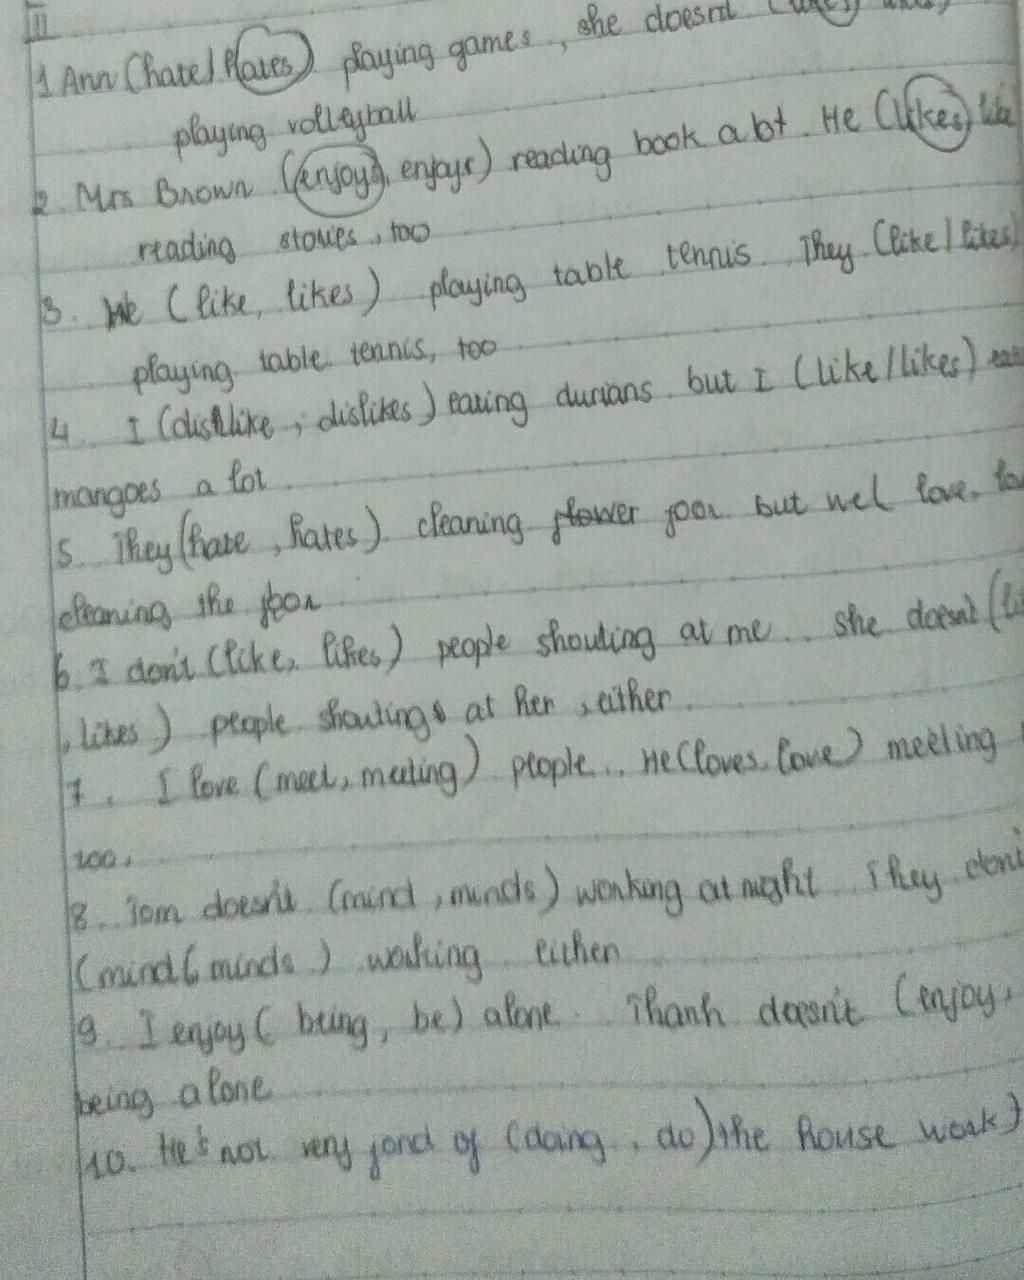 II
1 Ann (hate/hates) playing games, she doesnt (likes)
playing volleyball
2. Mrs Brown (enjoys, enjoys) reading book a bt. He (likes) like
reading stories, too
3. We (like, likes) playing table tennis They (like/likes)
playing table tennis, too
4. I (dislike, dislikes) eating durians but I (like/likes)
mangoes a lot
5. They (hate, hates) cleaning floor but love,
cleaning the floor
6. I don't (like, likes) people shouting at me.. She doesn't
, likes) people shoutings at her, either.
7. I love (meet, meeting) people.. He (loves, love) meeting
too.
8. Tom doesn't (mind, minds) working at night They don't
(mind ( minds) working either
9. I enjoy (being, be) alone. Thanh doesn't (enjoy,
being alone
10. He's not very fond of (doing, do) the house work)